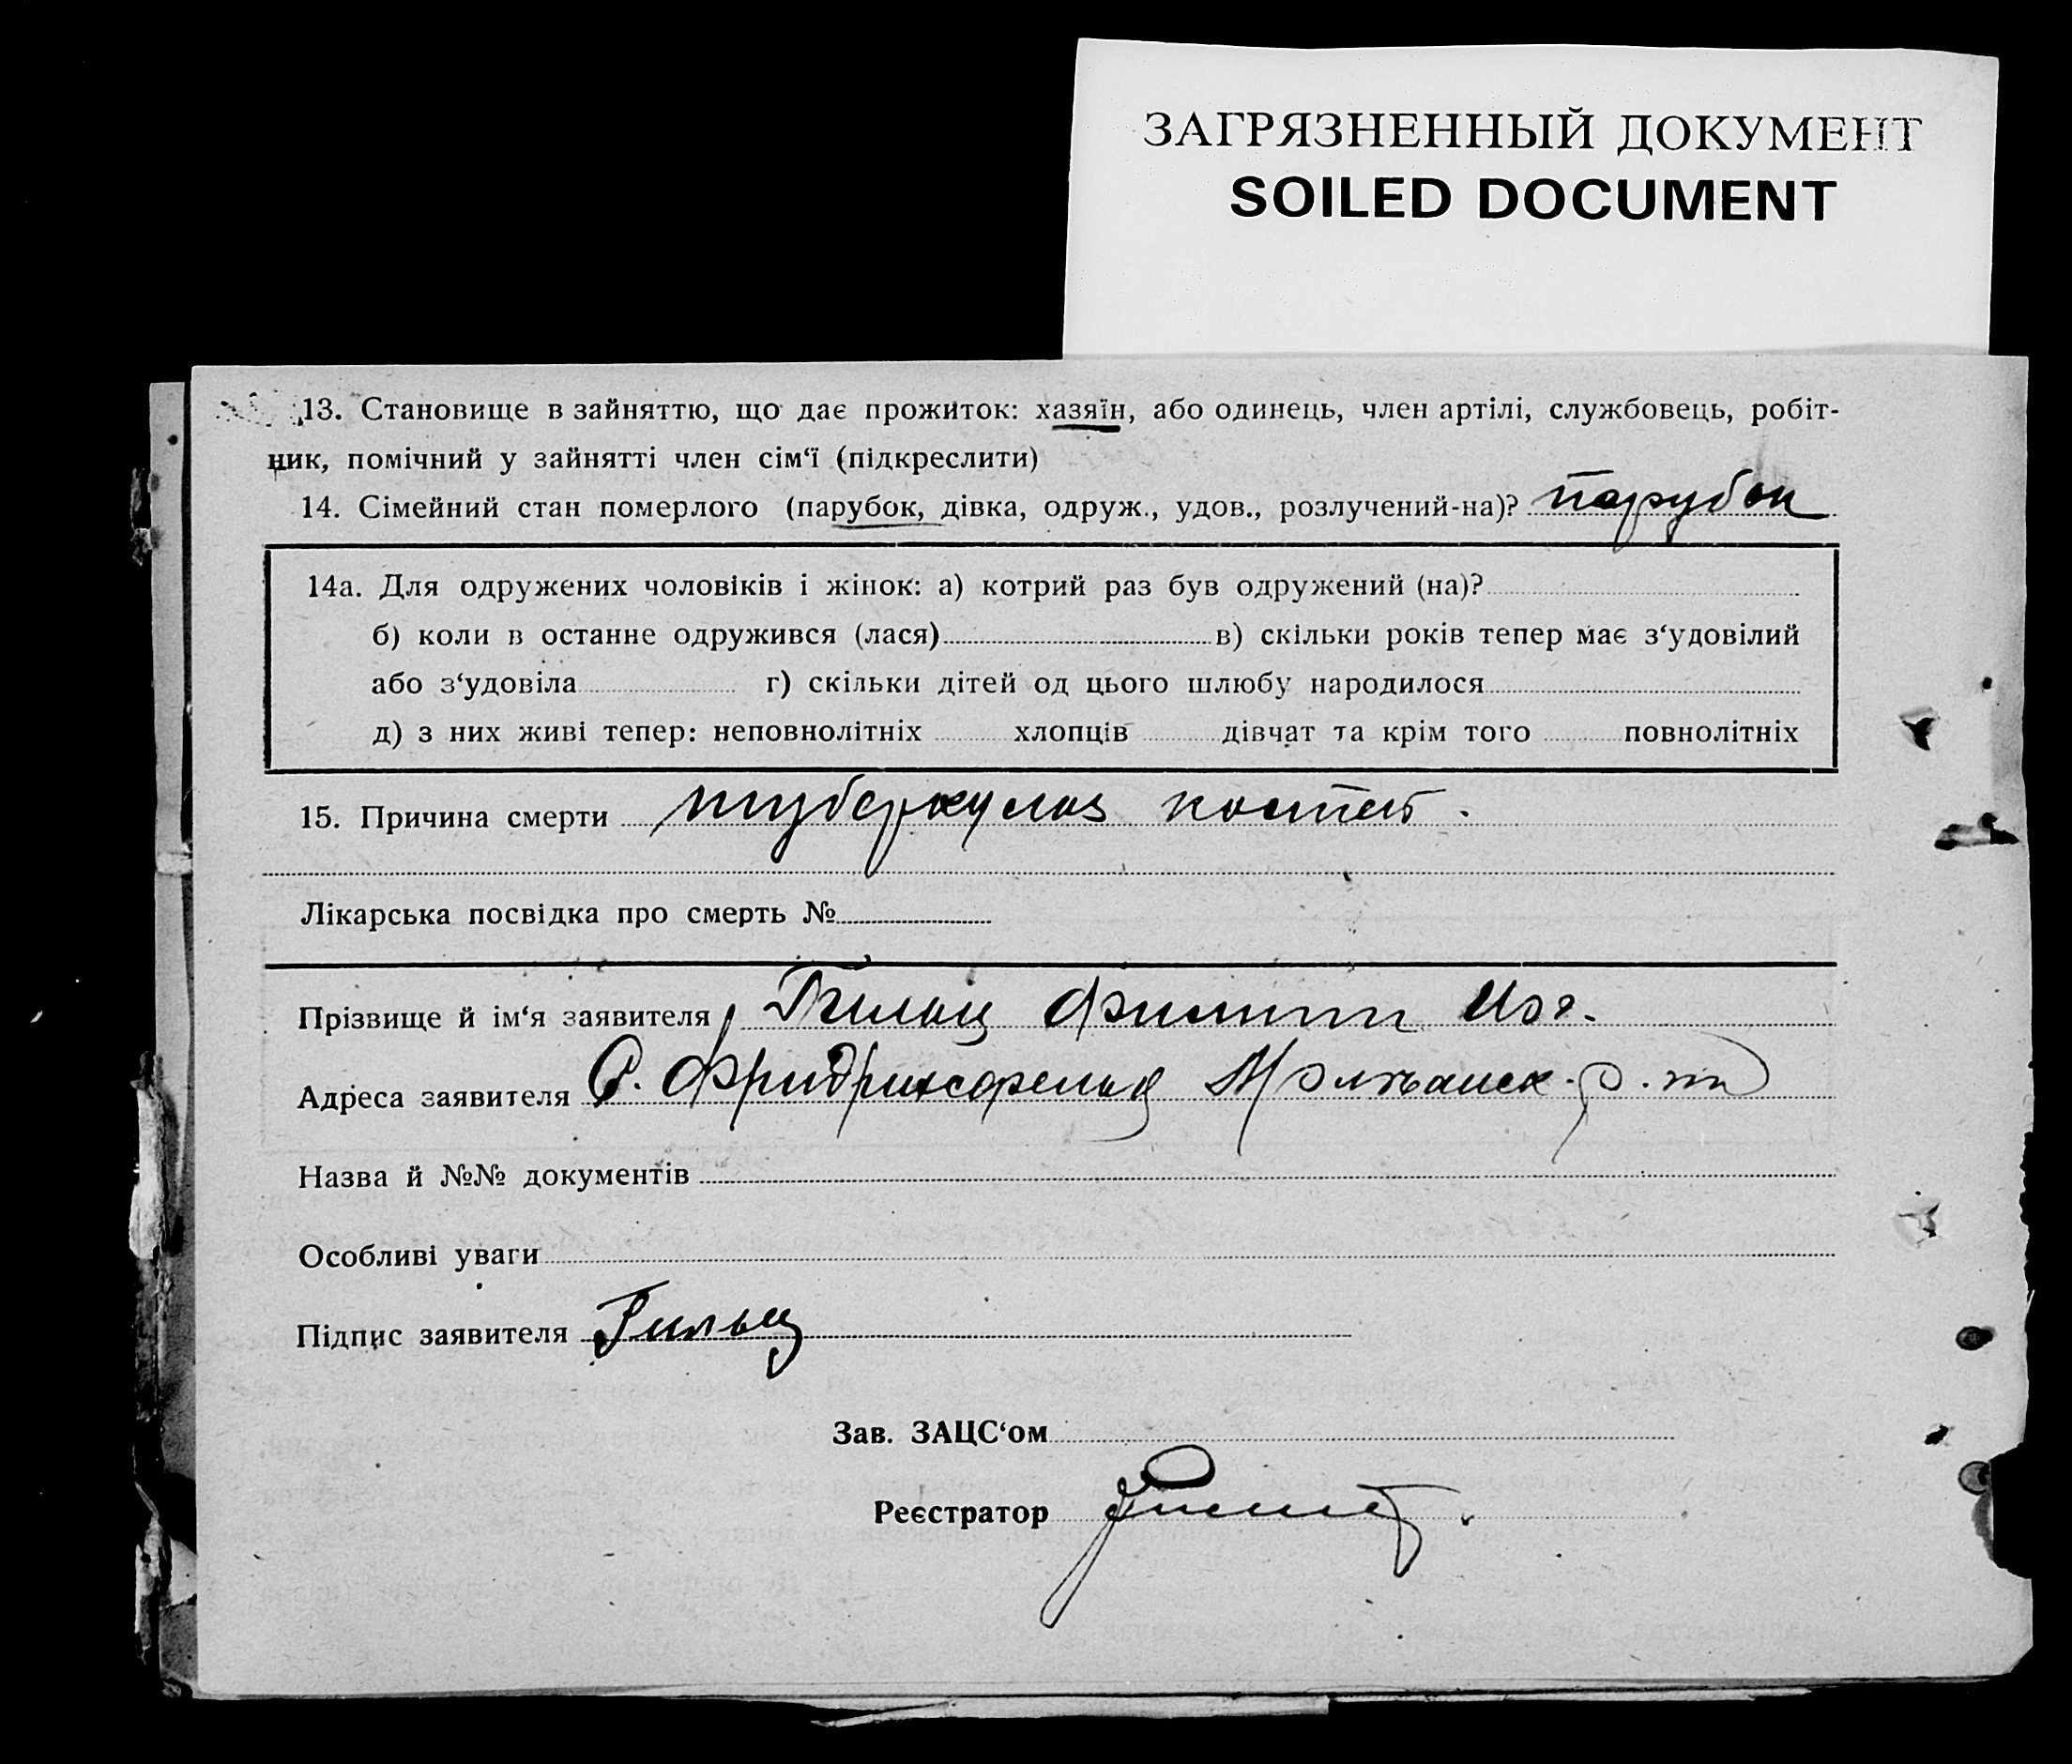 ЗАГРЯЗНЕННЫЙ ДОКУМЕНТ
SOILED DOCUMENT
13. Становище в зайняттю, що дає прожиток: хазяїн, або одинець, член артілі, службовець, робіт-
ник, помічний у зайнятті член сім‘ї (підкреслити)
14. Сімейний стан померлого (парубок, дівка, одруж., удов., розлучений-на)? парубок
14а. Для одружених чоловіків і жінок: а) котрий раз був одружений (на)?
б) коли в останне одружився (лася) в) скільки років тепер має з‘удовілий
або з‘удовіла г) скільки дітей од цього шлюбу народилося
д) з них живі тепер: неповнолітніх хлопців дівчат та крім того повнолітніх
15. Причина смерти туберкулоз костей.
Лікарська посвідка про смерть №
Прізвище й ім‘я заявителя Гильц Филипп
Адреса заявителя С. Фридрихсфельд
Назва й №№ документів
Особливі уваги
Підпис заявителя Гильц
Зав. ЗАЦС‘ом
Реєстратор